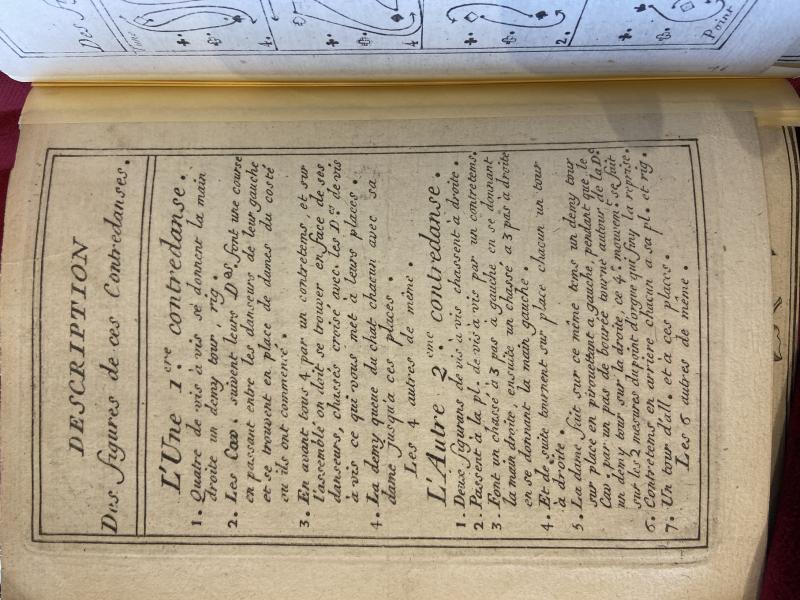 DESCRIPTION
Des figures de ces Contredanses.
L'Une 1.ere contredanse.
1. Quatre de vis à vis se donnent la main
droite un demy tour, rig.
2. Les Cav. suivent leurs D.es font une course
en passant entre les danseurs de leur gauche
et se trouvent en place de dames du costé
ou ils ont commencé.
3. En avant tous 4 par un contretems et sur
l'assemblé on doit se trouver en face de ses
danseurs, chassés croisé avec les D.es de vis
à vis ce qui vous met a leurs places.
4. La demy queue du chat chacun avec sa
dame jusqu'a ces places.
Les 4 autres de même.
L'Autre 2.eme contredanse.
1. Deux figurans de vis à vis chassent à droite.
2. Passent à la pl. de vis à vis par un contretems.
3. Font un chassé à 3 pas à gauche en se donnant
la main droite ensuite un chassé a 3 pas à droite
en se donnant la main gauche.
4. Et de suite tournent sur place chacun un tour
à droite.
5. La dame fait sur ce même tems un demy tour
sur place en pirouettant a gauche, pendant que le
Cav. par un pas de bourée tourne autour de la D.e
un demy tour sur la droite, ce 4.e mouvem.t se fait
sur les 2 mesures du point d'orgue qui finy la reprise.
6. Contretems en arriere chacun a sa pl. et rig.
7. Un tour d'all. et à ces places.
Les 6 autres de même.
Point
2.
4
4.